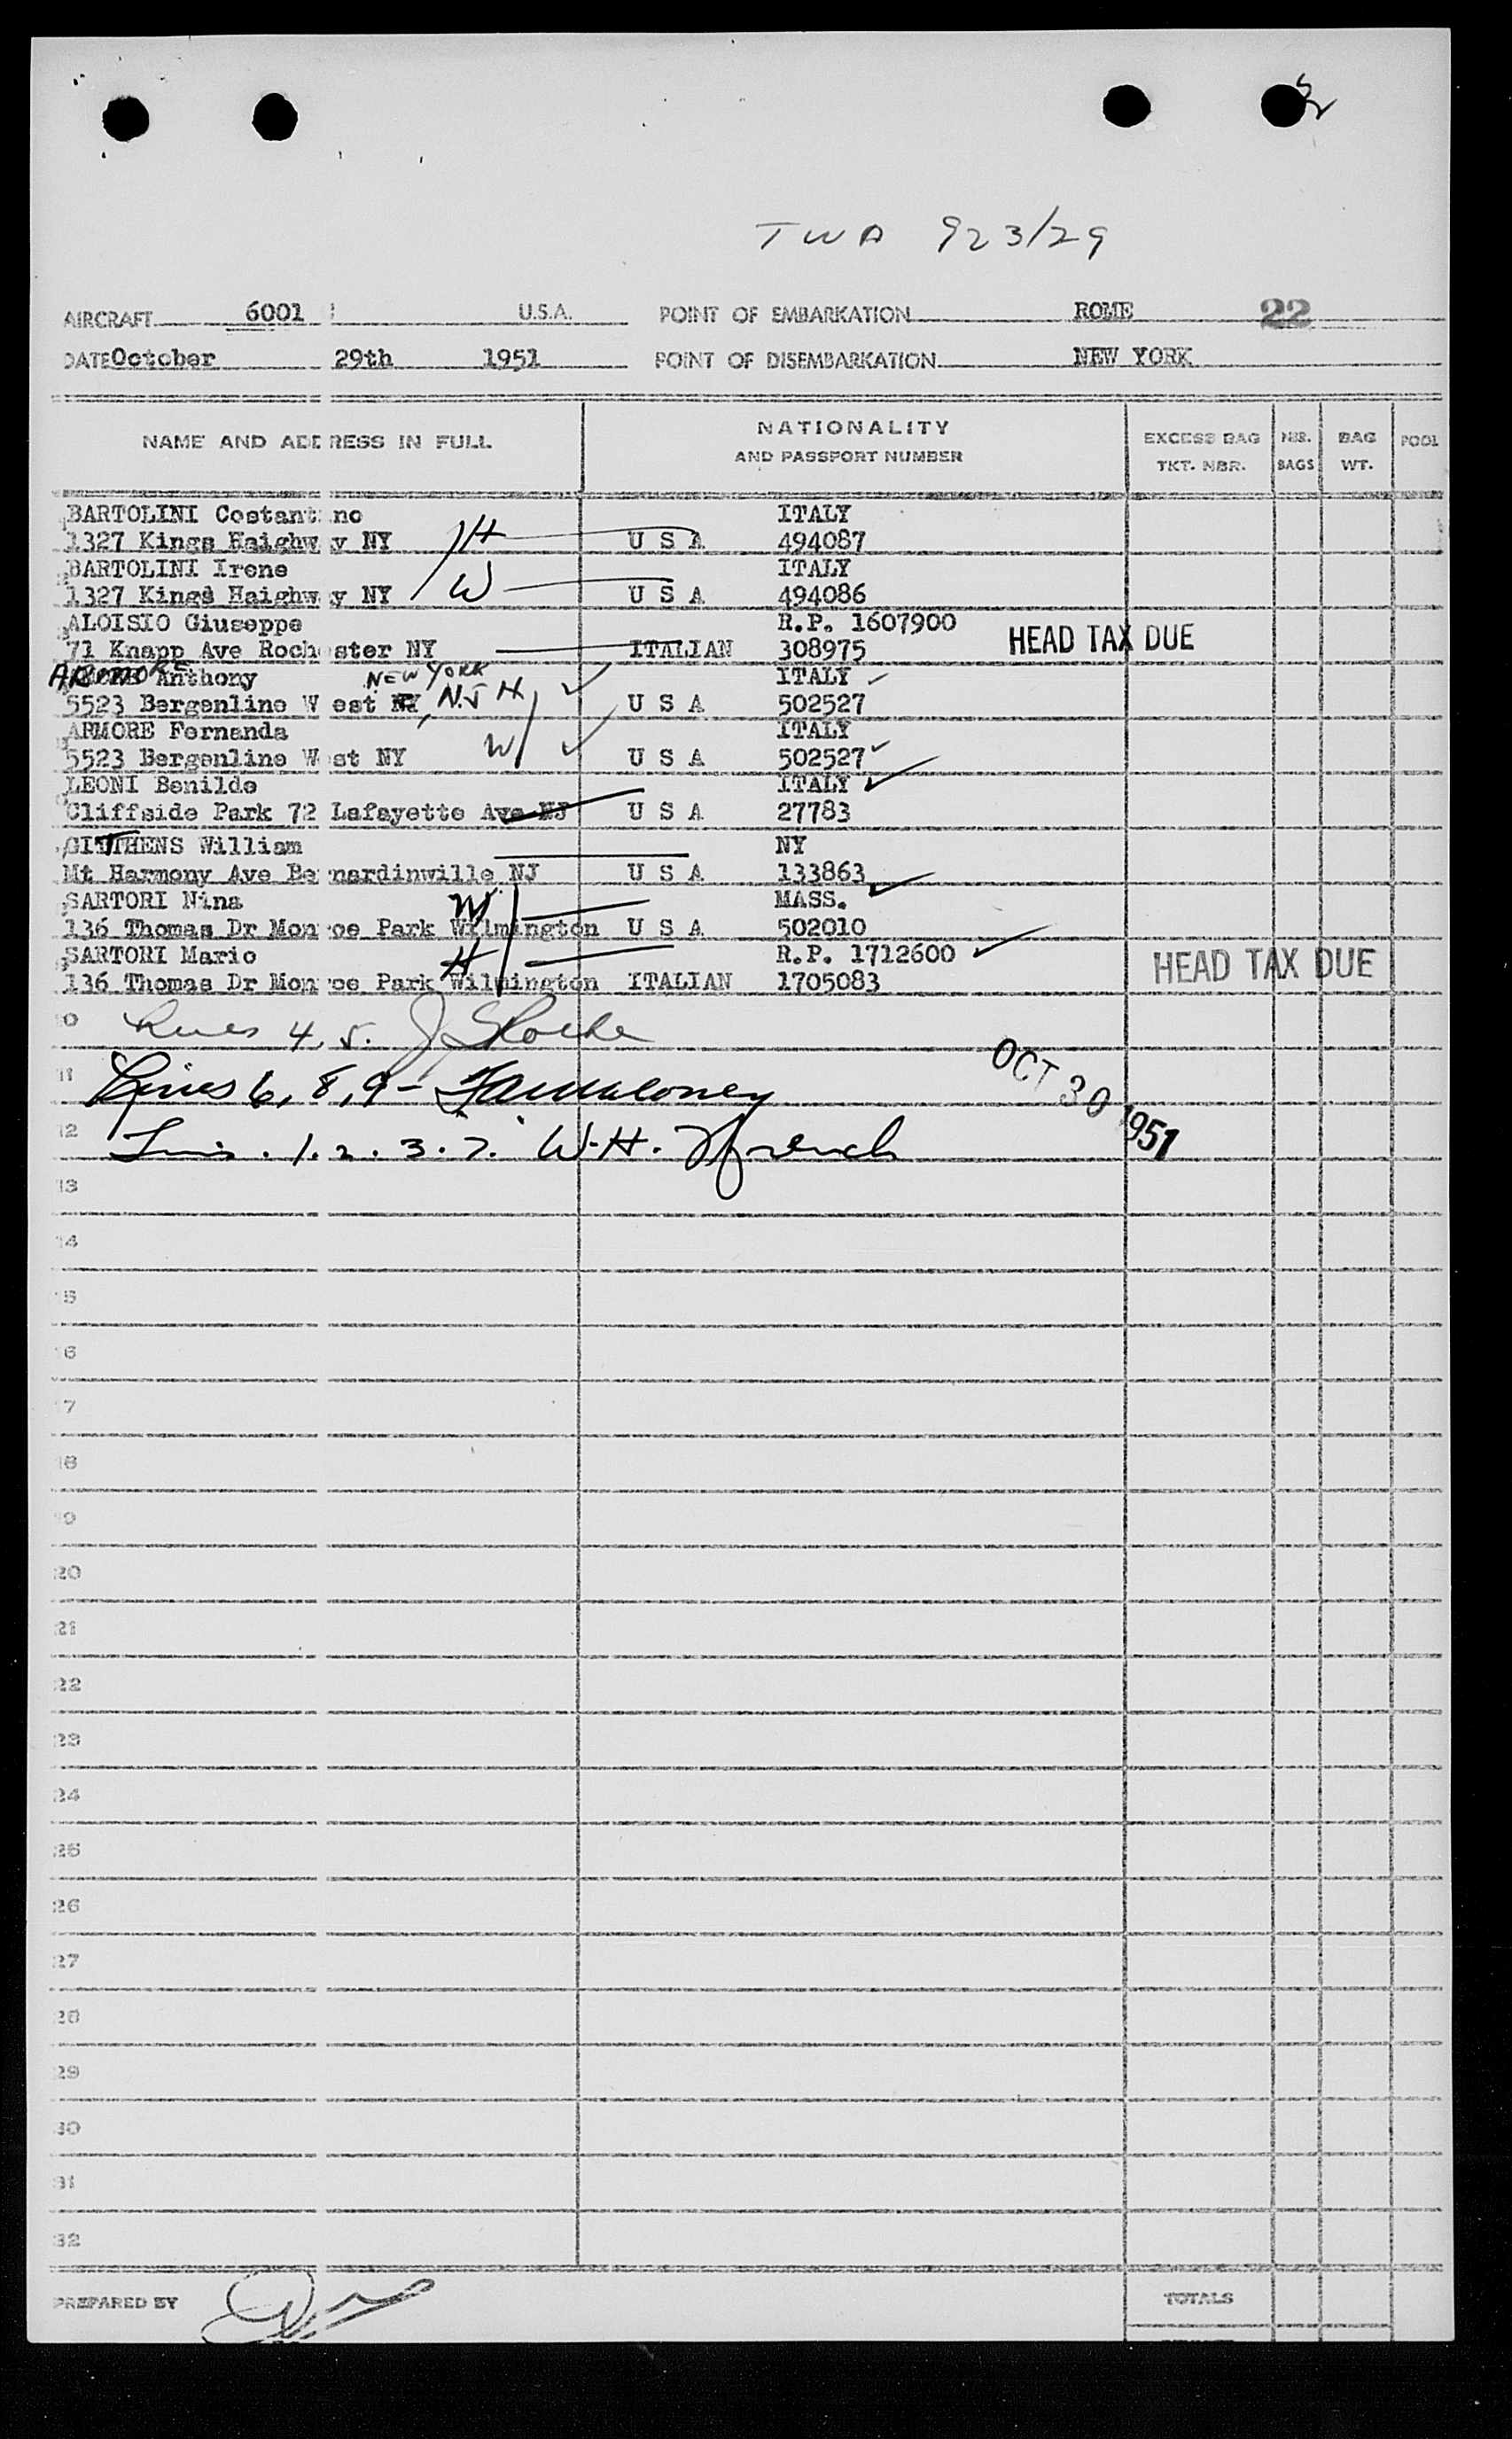 TWA 923/29
AIRCRAFT 6001 U.S.A. POINT OF EMBARKATION ROME 22
DATE October 29th 1951 POINT OF DISEMBARKATION NEW YORK
NAME AND ADDRESS IN FULL
NATIONALITY
AND PASSPORT NUMBER
EXCESS BAG
TKT. NBR.
NBR.
BAGS
BAG
WT.
POOL
BARTOLINI Costantino ITALY
1327 Kings Haighway NY H U S A 494087
BARTOLINI Irene ITALY
1327 Kings Haighway NY W U S A 494086
ALOISIO Giuseppe R.P. 1607900
71 Knapp Ave Rochester NY ITALIAN 308975 HEAD TAX DUE
ARMORE Anthony NEW YORK ITALY
5523 Bergenline West N.J H U S A 502527
ARMORE Fernanda ITALY
5523 Bergenline West NY W U S A 502527
LEONI Benilde ITALY
Cliffside Park 72 Lafayette Ave NJ U S A 27783
GITTHENS William NY
Mt Harmony Ave Bernardinville NJ U S A 133863
SARTORI Nina W MASS.
136 Thomas Dr Monroe Park Wilmington U S A 502010
SARTORI Mario H R.P. 1712600
136 Thomas Dr Monroe Park Wilmington ITALIAN 1705083 HEAD TAX DUE
10 Lines 4, 5. J Roche
11 Lines 6, 8, 9 -
OCT 30 1951
12 1. 2. 3. 7. W. H. French
13
14
15
16
17
18
19
20
21
22
23
24
25
26
27
28
29
30
31
32
PREPARED BY
TOTALS